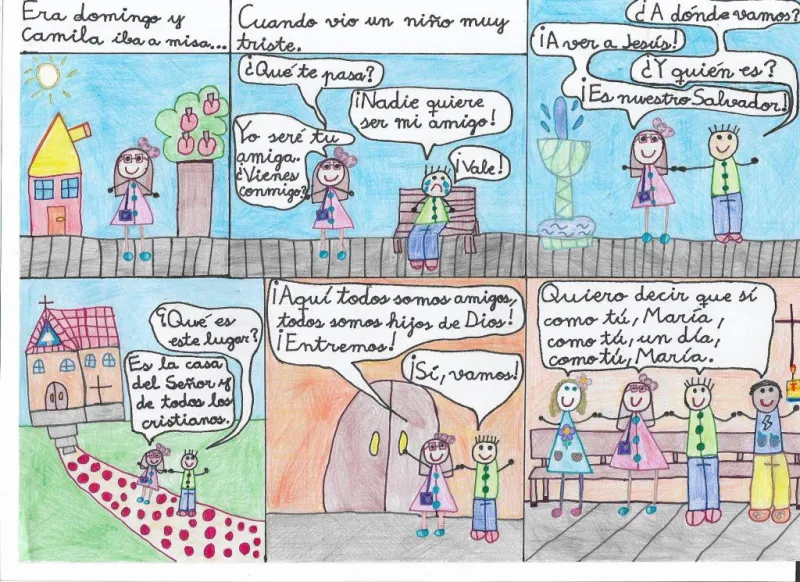 Era domingo y
Camila iba a misa...
Cuando vio un niño muy
triste.
¿Qué te pasa?
¡Nadie quiere
ser mi amigo!
Yo seré tu
amiga.
¿Vienes
conmigo?
¡Vale!
¿A dónde vamos?
¡A ver a Jesús!
¿Y quién es?
¡Es nuestro Salvador!
¿Qué es
este lugar?
Es la casa
del Señor y
de todos los
cristianos.
¡Aquí todos somos amigos,
todos somos hijos de Dios!
¡Entremos!
¡Sí, vamos!
Quiero decir que sí
como tú, María,
como tú, un día,
como tú, María.